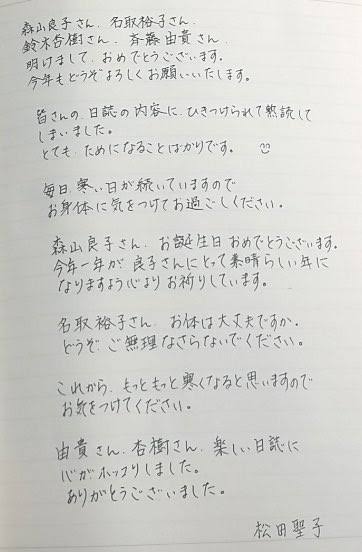 森山良子さん、名取裕子さん、
鈴木杏樹さん、斉藤由貴さん、
明けまして、おめでとうございます。
今年もどうぞよろしくお願いいたします。
皆さんの、日誌の内容に、ひきつけられて熟読して
しまいました。
とても、ためになることばかりです。
毎日、寒い日が続いていますので
お身体に気をつけてお過ごしください。
森山良子さん、お誕生日おめでとうございます。
今年一年が、良子さんにとって素晴らしい年に
なりますよう心よりお祈りしています。
名取裕子さん、お体は大丈夫ですか。
どうぞ、ご無理なさらないでください。
これから、もっともっと寒くなると思いますので
お気をつけてください。
由貴さん、杏樹さん、楽しい日誌に
心がホッコリしました。
ありがとうございました。
松田聖子